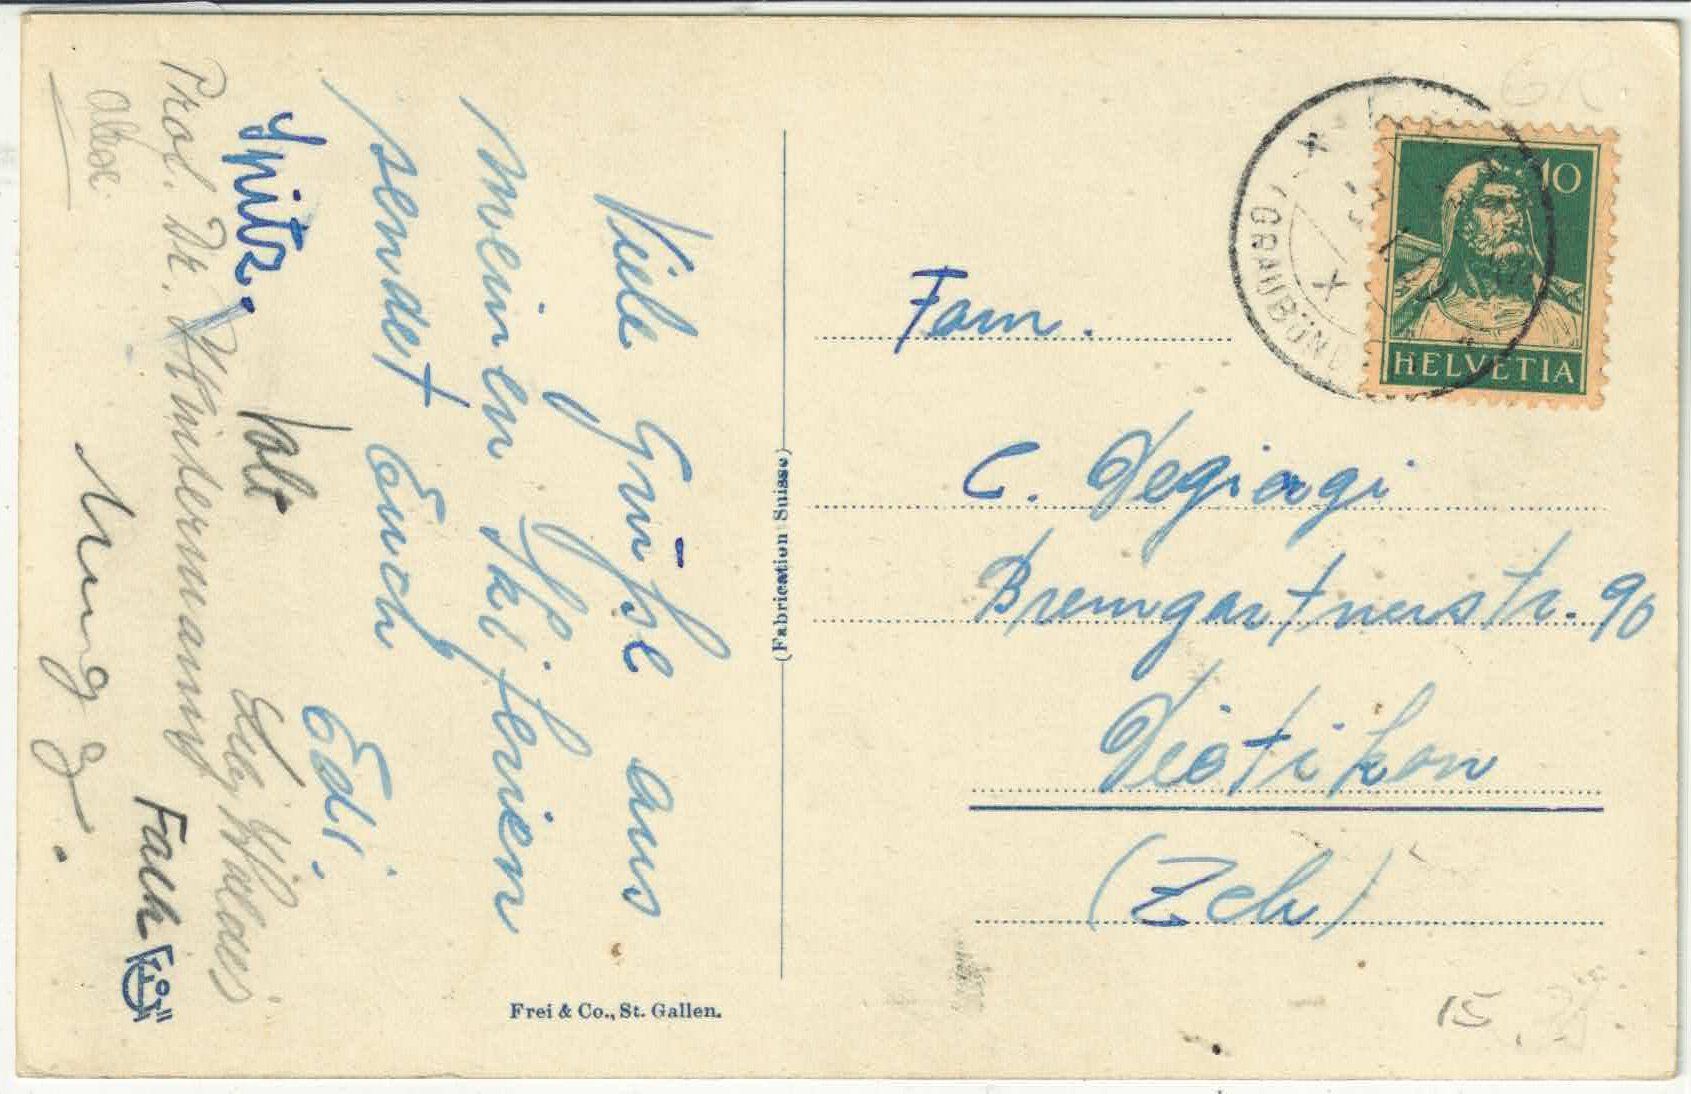 Viele Grüsse aus
meinen Skiferien
sendet Euch
Edi.
Spitz.
Prof. Dr.
Falk
Fam.
C. Degiorgi
Bremgartnerstr. 90
Dietikon
(Zch)
(Fabrication Suisse)
Frei & Co., St. Gallen.
10
HELVETIA
(GRAUBÜND
GR
15